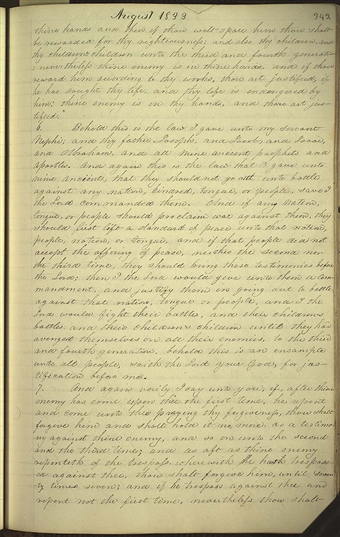 August 1833 342
thine hands and then if thou wilt spare him thou shalt
be rewarded for thy righteousness and also thy children and
thy childrens children unto the third and fourth generation
; nevertheless thine enemy is in thine hands, and if thou
reward him according to thy works, thou art justified, if
he has sought thy life, and thy life is endangered by
him; thine enemy is in thy hands, and thou art jus-
tified;
6. Behold this is the law I gave unto my servant
Nephi; and thy father Joseph, and Jacob, and Isaac,
and Abraham, and all mine ancient prophets and
apostles. And again this is the law that I gave unto
mine ancients, that they should not go out unto battle
against any nation, kindred, tongue, or people, save I
the Lord commanded them. And if any Nation,
tongue, or people should proclaim war against them, they
should first lift a standard of peace unto that nation,
people, nation, or tongue, and if that people did not
accept the offering of peace, neither the second nor
the third time, they should bring these testimonies before
the Lord; then I the Lord would give unto them a com-
mandment, and justify them in going out to battle
against that nation, tongue or people, and I the
Lord would fight their battles, and their childrens
battles and their childrens children until they had
avenged themselves on all their enemies, to the third
and fourth generation, behold this is an ensample
unto all people, saith the Lord your God, for jus-
tification before me.
7. And again verily I say unto you, if, after thine
enemy has come upon thee the first time, he repent
and come unto thee praying thy forgiveness, thou shalt
forgive him and shall hold it no more as a testimo-
ny against thine enemy, and so on unto the second
and the third time; and as oft as thine enemy
repenteth of the trespass wherewith he hath trespass-
ed against thee, thou shalt forgive him, until seven-
ty times seven; and if he trespass against thee and
repent not the first time, nevertheless thou shalt